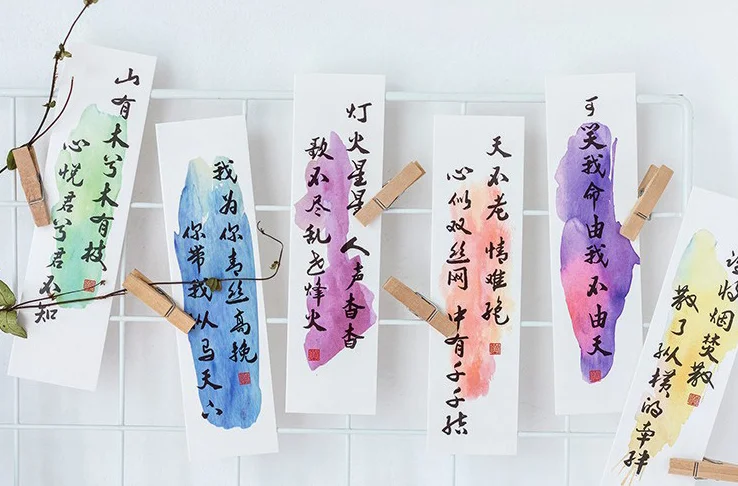 山有木兮木有枝
心悦君兮君不知
我为你青丝高挽
你带我从马天下
灯火星星 人声杳杳
歌不尽乱世烽火
天不老 情难绝
心似双丝网 中有千千结
可笑我命由我不由天
将烟焚散
散了纵横的牵绊